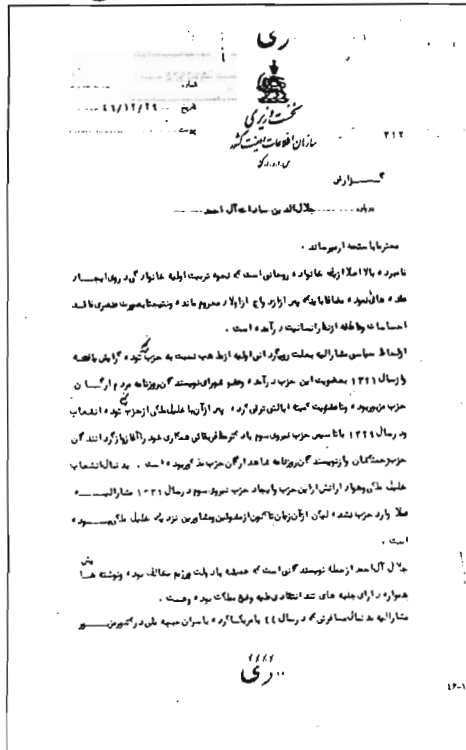 سری
شماره
تاریخ ۴۶/۱۲/۲۹
پیوست
نخست وزیری
سازمان اطلاعات و امنیت کشور
س.ا.و.ا.ک
۳۱۲
گـــزارش
درباره جلال‌الدین سادات آل احمد
محترما باستحضار میرساند.
نامبرده بالا اصلا از یک خانواده روحانی است که نحوه تربیت اولیه خانوادگی در وی ایجاد
عقده هائی نموده مضافا باینکه پس از ازدواج از اولاد محروم مانده و نتیجتا بصورت عنصری فاقد
احساسات و عاطفه از نظر انسانیت درآمده است.
از لحاظ سیاسی مشارالیه بعلت رویگردانی اولیه از مذهب نسبت به حزب توده گرایش یافته
و از سال ۱۳۲۱ بعضویت این حزب درآمده و عضو شورای نویسندگان روزنامه مردم ارگان
حزب مزبور بوده و تا عضویت کمیته ایالتی ترقی کرده پس از آن با خلیل ملکی از حزب توده انشعاب
و در سال ۱۳۲۹ با تاسیس حزب نیروی سوم باتفاق دکتر مظفر بقائی همکاری خود را آغاز و از گردانندگان
حزب زحمتکشان و از نویسندگان روزنامه شاهد ارگان حزب مذکور بوده است. بدنبال انشعاب
خلیل ملکی و هوادارانش از این حزب و ایجاد حزب نیروی سوم در سال ۱۳۳۱ مشارالیه
عملا وارد حزب نشده لیکن از آن زمان تاکنون از معتمدین و مشاورین نزدیک خلیل ملکی بوده
است.
جلال آل احمد از جمله نویسندگانی است که همیشه با دولت و رژیم مخالف بوده و نوشته هایش
همواره دارای جنبه های تند انتقادی علیه وضع مملکت بوده و هست.
مشارالیه بدنبال مسافرتی که در سال ۴۴ بامریکا کرده با سران جبهه ملی در کشور مزبور
سری
۴۶-۱